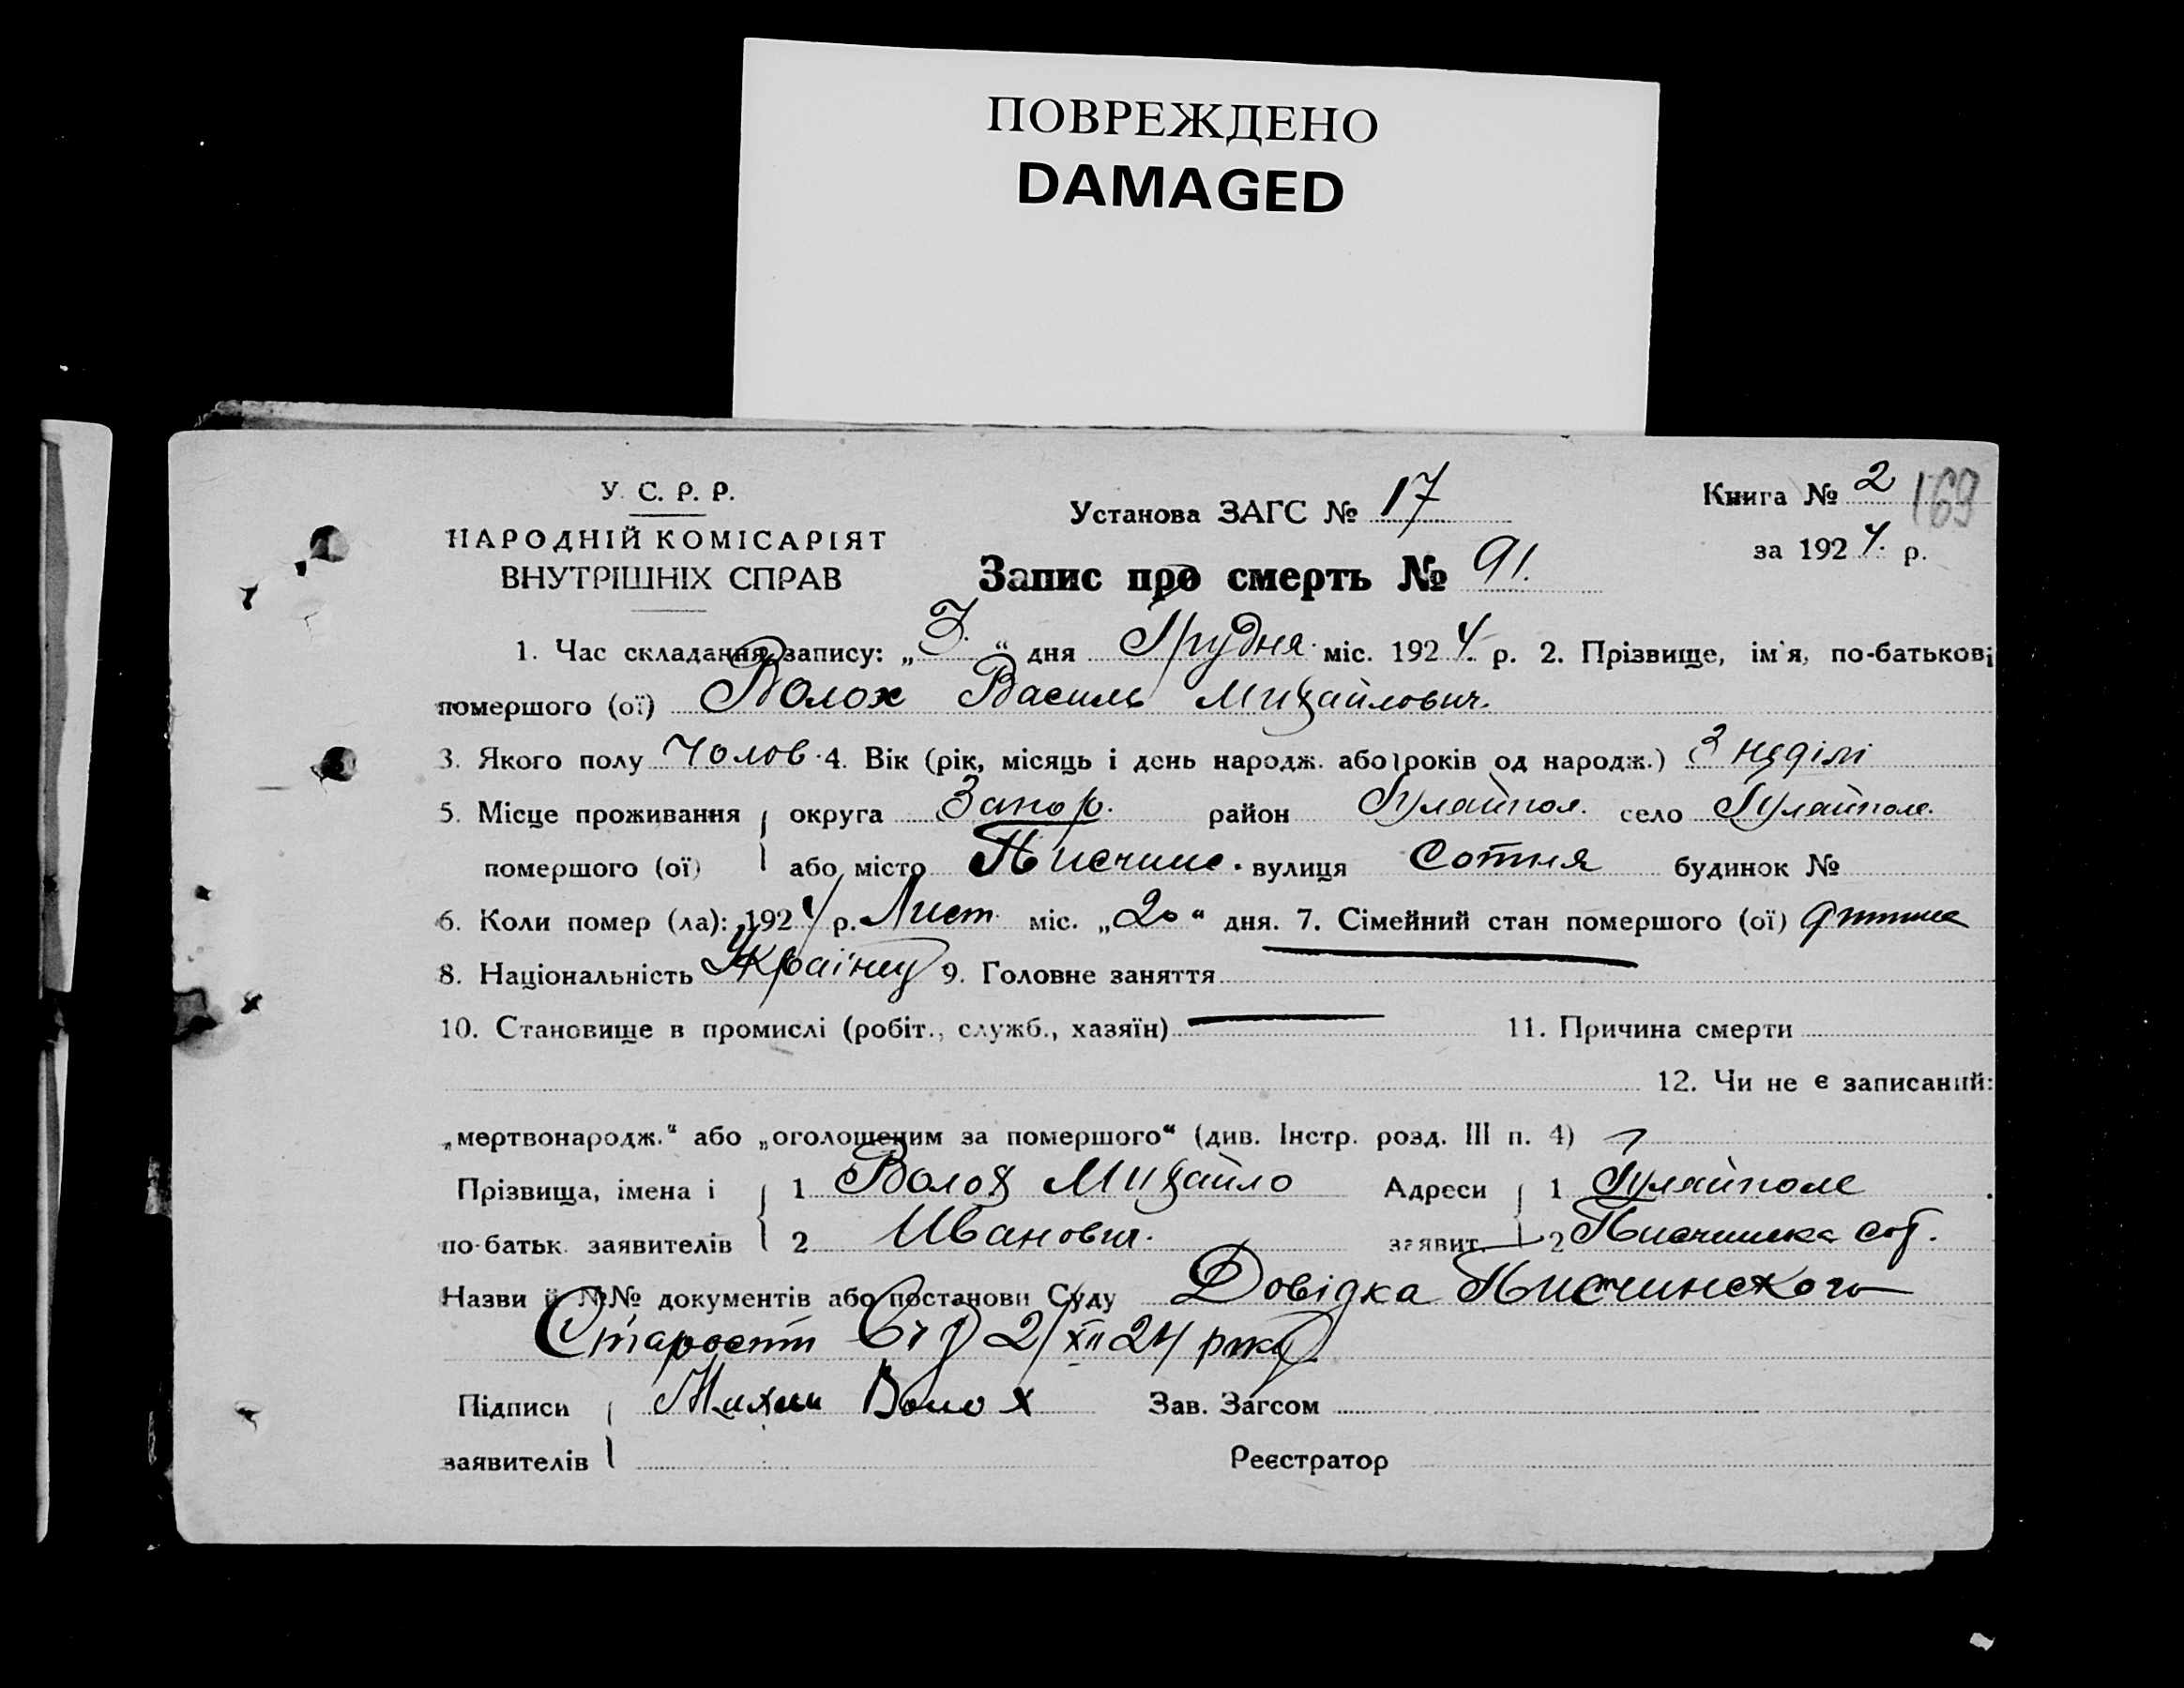 ПОВРЕЖДЕНО
DAMAGED
У. С. Р. Р.
НАРОДНІЙ КОМІСАРІЯТ
ВНУТРІШНІХ СПРАВ
Установа ЗАГС № 17
Книга № 2 169
за 1924. р.
Запис про смерть № 91.
1. Час складання запису: „3.“ дня Грудня міс. 1924. р. 2. Прізвище, ім'я, по-батькові
помершого (ої) Волох Василь Михайлович.
3. Якого полу Чолов. 4. Вік (рік, місяць і день народж. або років од народж.) 3 неділі
5. Місце проживання округа Запор. район Гуляйпол. село Гуляйполе.
помершого (ої) або місто вулиця Сотня будинок №
6. Коли помер (ла): 1924 р. Лист. міс. „20“ дня. 7. Сімейний стан помершого (ої)
8. Національність Українц 9. Головне заняття
10. Становище в промислі (робіт., служб., хазяїн) 11. Причина смерти
12. Чи не є записаний:
„мертвонародж.“ або „оголошеним за помершого“ (див. Інстр. розд. III п. 4)
Прізвища, імена і 1 Волох Михайло Адреси 1 Гуляйполе
по-батьк. заявителів 2 Иванович. заявит. 2 сот.
Назви й №№ документів або постанови Суду Довідка
Старости 2/XII 24 року
Підписи Волох Зав. Загсом
заявителів Реєстратор